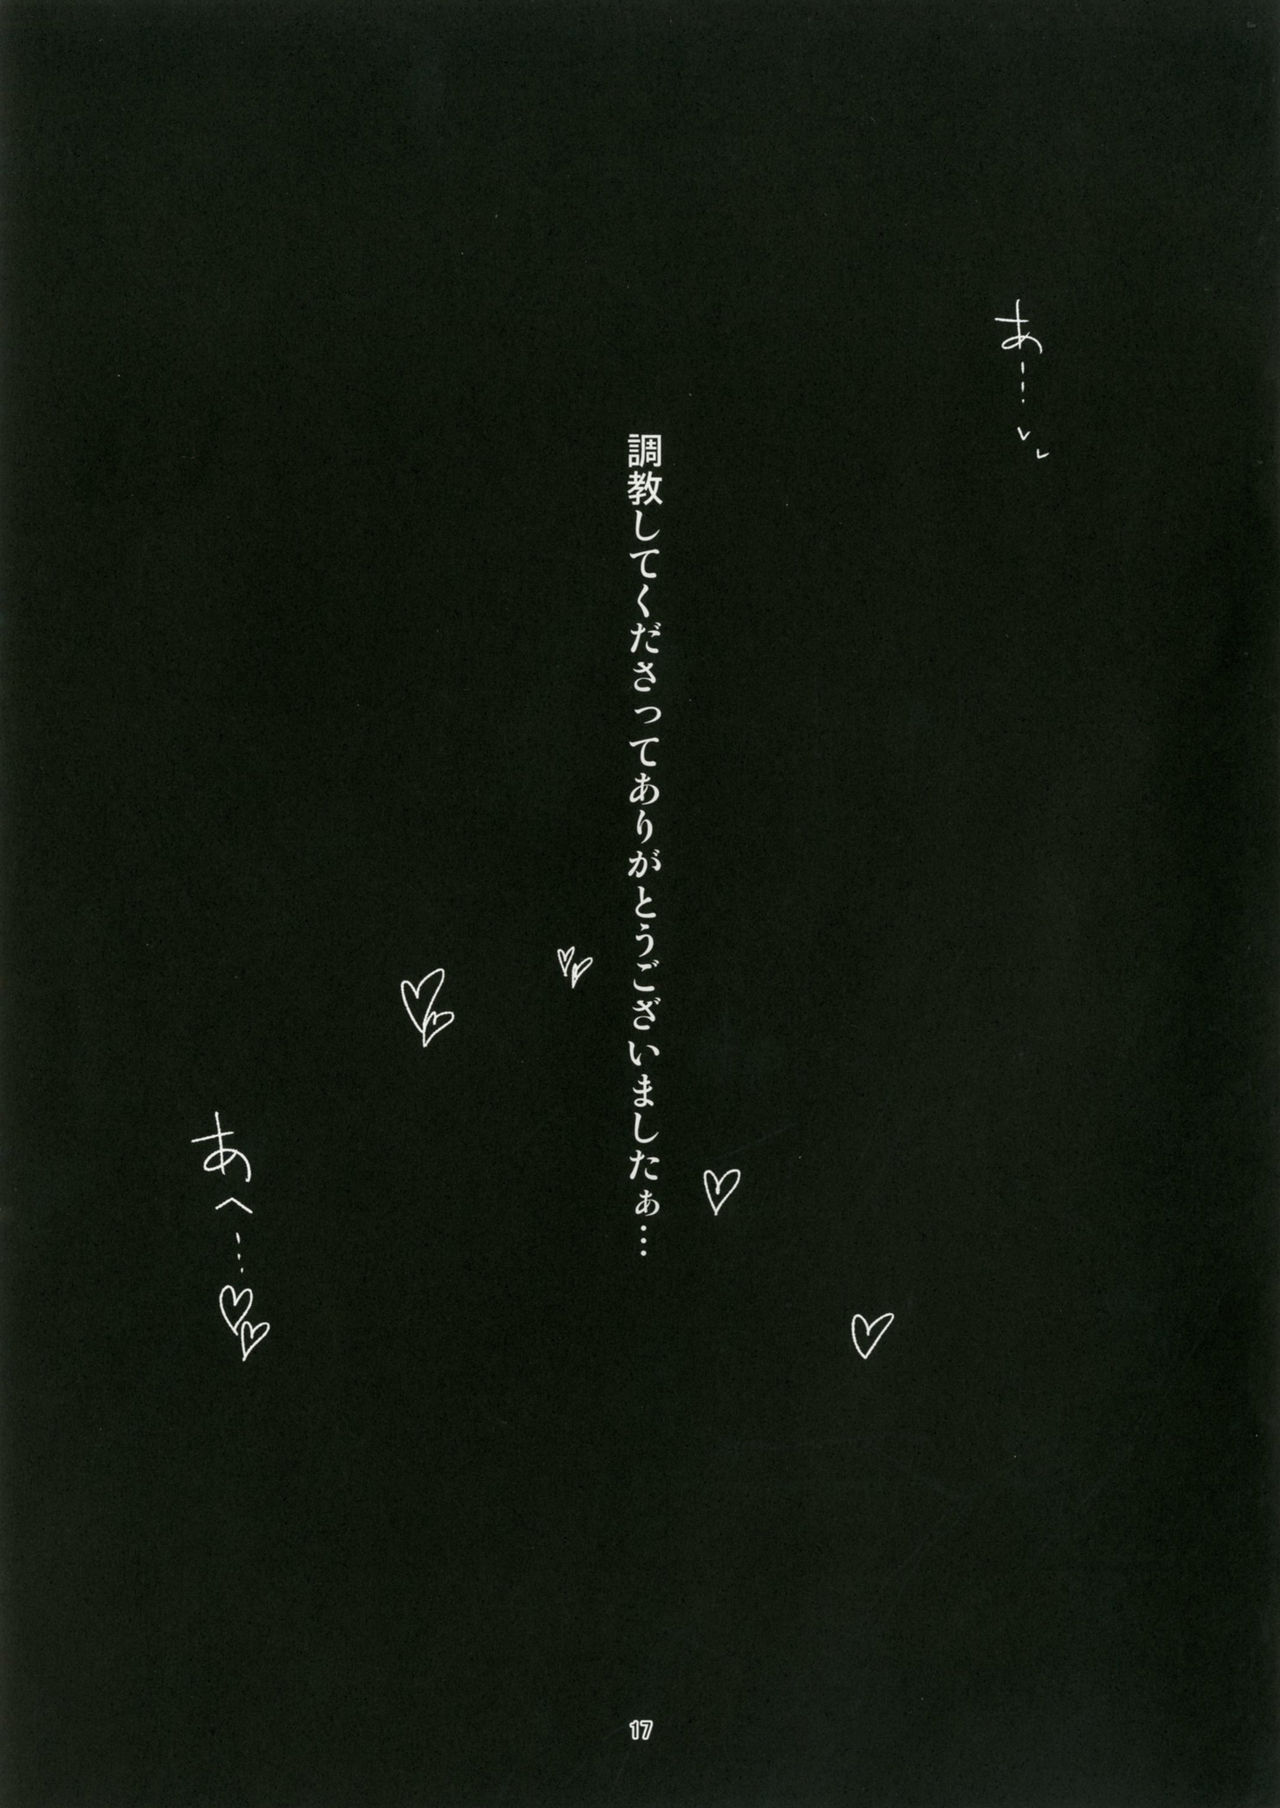 あ…
調教してくださってありがとうございましたぁ…
あへ…
17